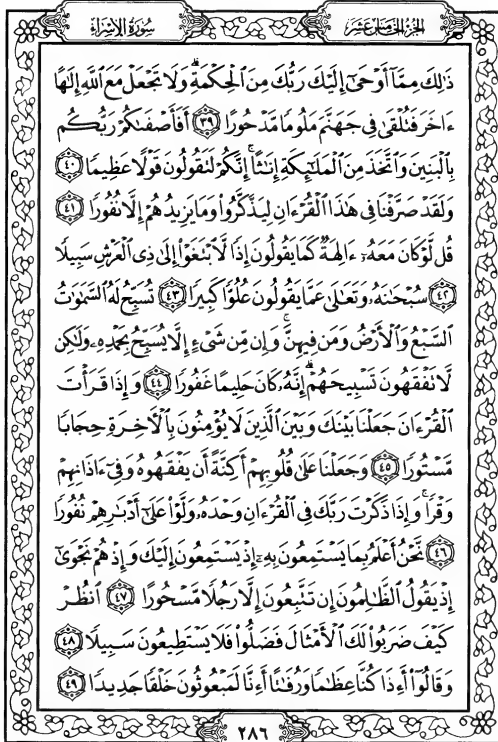 سُورَةُ الإِسْرَاءِ
الجُزْءُ الخَامِسَ عَشَرَ
ذَٰلِكَ مِمَّآ أَوْحَىٰٓ إِلَيْكَ رَبُّكَ مِنَ ٱلْحِكْمَةِۗ وَلَا تَجْعَلْ مَعَ ٱللَّهِ إِلَٰهًا
ءَاخَرَ فَتُلْقَىٰ فِي جَهَنَّمَ مَلُومًا مَّدْحُورًا ٣٩ أَفَأَصْفَىٰكُمْ رَبُّكُم
بِٱلْبَنِينَ وَٱتَّخَذَ مِنَ ٱلْمَلَٰٓئِكَةِ إِنَٰثًاۚ إِنَّكُمْ لَتَقُولُونَ قَوْلًا عَظِيمًا ٤٠
وَلَقَدْ صَرَّفْنَا فِي هَٰذَا ٱلْقُرْءَانِ لِيَذَّكَّرُوا۟ وَمَا يَزِيدُهُمْ إِلَّا نُفُورًا ٤١
قُل لَّوْ كَانَ مَعَهُۥٓ ءَالِهَةٌ كَمَا يَقُولُونَ إِذًا لَّٱبْتَغَوْا۟ إِلَىٰ ذِي ٱلْعَرْشِ سَبِيلًا
٤٢ سُبْحَٰنَهُۥ وَتَعَٰلَىٰ عَمَّا يَقُولُونَ عُلُوًّا كَبِيرًا ٤٣ تُسَبِّحُ لَهُ ٱلسَّمَٰوَٰتُ
ٱلسَّبْعُ وَٱلْأَرْضُ وَمَن فِيهِنَّۚ وَإِن مِّن شَيْءٍ إِلَّا يُسَبِّحُ بِحَمْدِهِۦ وَلَٰكِن
لَّا تَفْقَهُونَ تَسْبِيحَهُمْۗ إِنَّهُۥ كَانَ حَلِيمًا غَفُورًا ٤٤ وَإِذَا قَرَأْتَ
ٱلْقُرْءَانَ جَعَلْنَا بَيْنَكَ وَبَيْنَ ٱلَّذِينَ لَا يُؤْمِنُونَ بِٱلْءَاخِرَةِ حِجَابًا
مَّسْتُورًا ٤٥ وَجَعَلْنَا عَلَىٰ قُلُوبِهِمْ أَكِنَّةً أَن يَفْقَهُوهُ وَفِيٓ ءَاذَانِهِمْ
وَقْرًاۚ وَإِذَا ذَكَرْتَ رَبَّكَ فِي ٱلْقُرْءَانِ وَحْدَهُۥ وَلَّوْا۟ عَلَىٰٓ أَدْبَٰرِهِمْ نُفُورًا
٤٦ نَّحْنُ أَعْلَمُ بِمَا يَسْتَمِعُونَ بِهِۦٓ إِذْ يَسْتَمِعُونَ إِلَيْكَ وَإِذْ هُمْ نَجْوَىٰٓ
إِذْ يَقُولُ ٱلظَّٰلِمُونَ إِن تَتَّبِعُونَ إِلَّا رَجُلًا مَّسْحُورًا ٤٧ ٱنظُرْ
كَيْفَ ضَرَبُوا۟ لَكَ ٱلْأَمْثَالَ فَضَلُّوا۟ فَلَا يَسْتَطِيعُونَ سَبِيلًا ٤٨
وَقَالُوٓا۟ أَءِذَا كُنَّا عِظَٰمًا وَرُفَٰتًا أَءِنَّا لَمَبْعُوثُونَ خَلْقًا جَدِيدًا ٤٩
٢٨٦